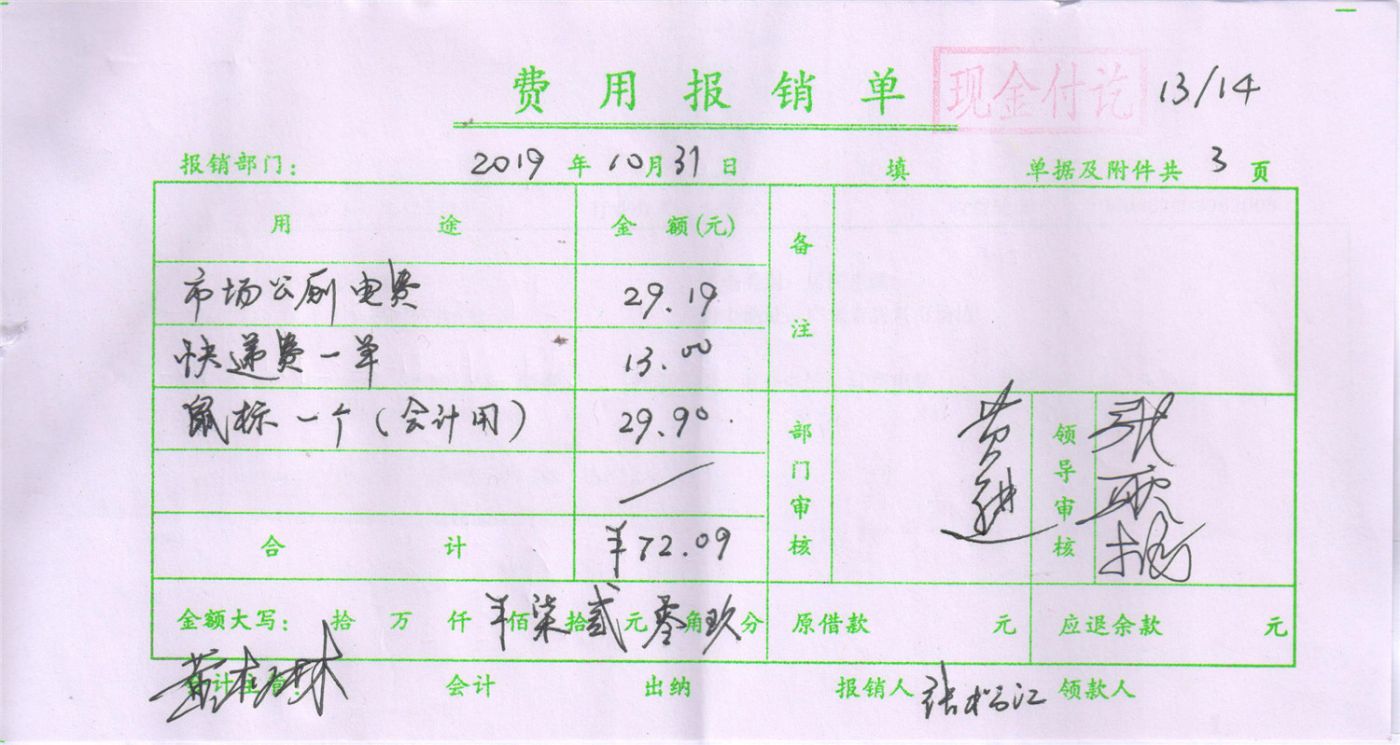 费用报销单 现金付讫 13/14
报销部门： 2019 年 10月 31日 填 单据及附件共 3 页
用途 金额(元) 备注
市场公厕电费 29.19
快递费一单 13.00
鼠标一个（会计用） 29.90
部门审核 黄进 领导审核
合计 ¥72.09
金额大写： 拾 万 仟 ¥佰柒拾贰元零角玖分 原借款 元 应退余款 元
会计主管： 会计 出纳 报销人 张松江 领款人